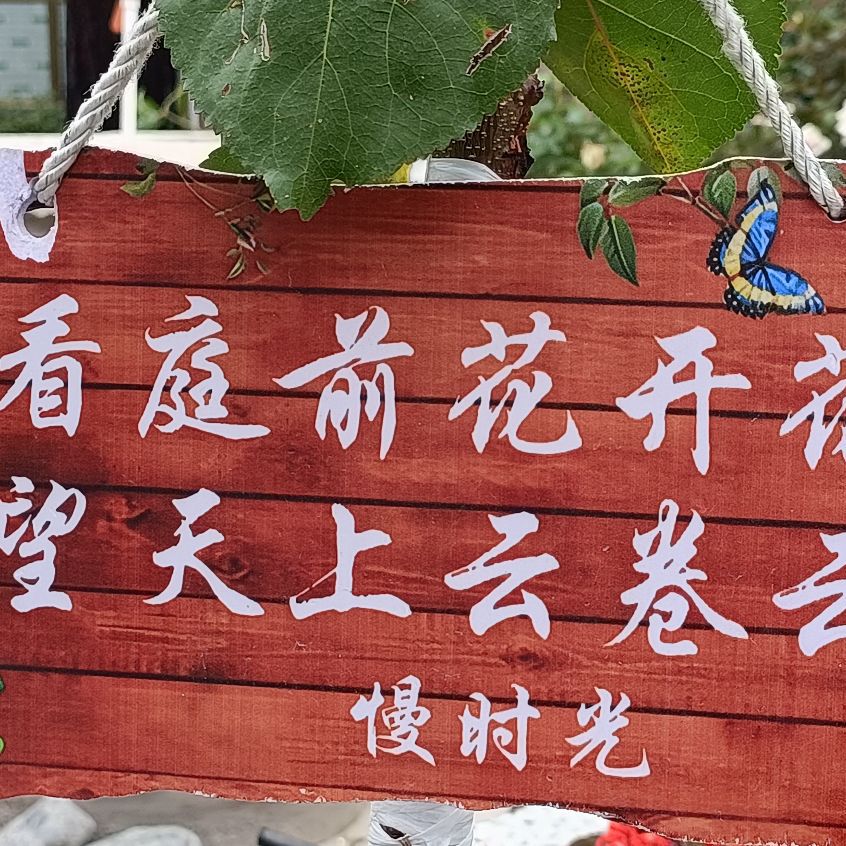 看庭前花开花
望天上云卷云
慢时光